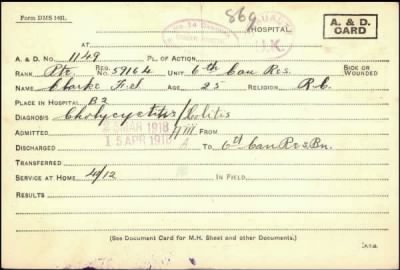 Form DMS 1401.
869
HOSPITAL.
A. & D. CARD
AT
A. & D. No. 1149 PL. OF ACTION
RANK Pte REG. No. 59164 UNIT 6th Can Res. SICK OR WOUNDED
NAME Clarke F.J AGE 25 RELIGION R.C.
PLACE IN HOSPITAL B2
DIAGNOSIS Cholycystitis/Colitis
ADMITTED MAR 1918 FROM
DISCHARGED 15 APR 1918 TO 6th Can Res Bn.
TRANSFERRED
SERVICE AT HOME 4/12 IN FIELD
RESULTS
(See Document Card for M.H. Sheet and other Documents.)